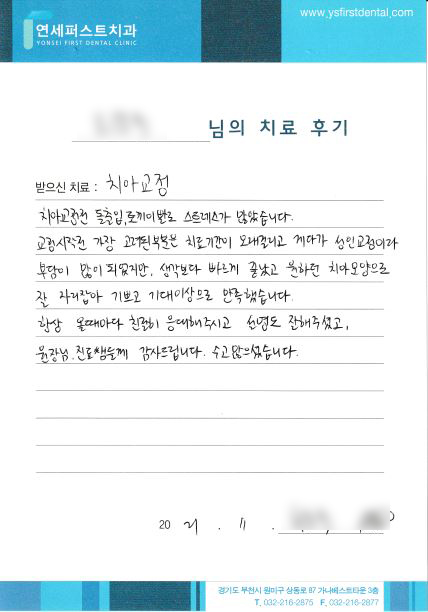 연세퍼스트치과
YONSEI FIRST DENTAL CLINIC
www.ysfirstdental.com
님의 치료 후기
받으신 치료 : 치아교정
치아교정전 돌출입, 토끼이빨로 스트레스가 많았습니다.
교정시작전 가장 고려된부분은 치료기간이 오래걸리고 게다가 성인교정이라
부담이 많이 되었지만, 생각보다 빠르게 끝났고 원하던 치아모양으로
잘 자리잡아 기쁘고 기대이상으로 만족했습니다.
항상 올때마다 친절히 응대해주시고 설명도 잘해주셨고,
원장님, 진료쌤들께 감사드립니다. 수고많으셨습니다.
20 21 . 11 .
경기도 부천시 원미구 상동로 87 가나베스트타운 3층
T. 032-216-2875 F. 032-216-2877